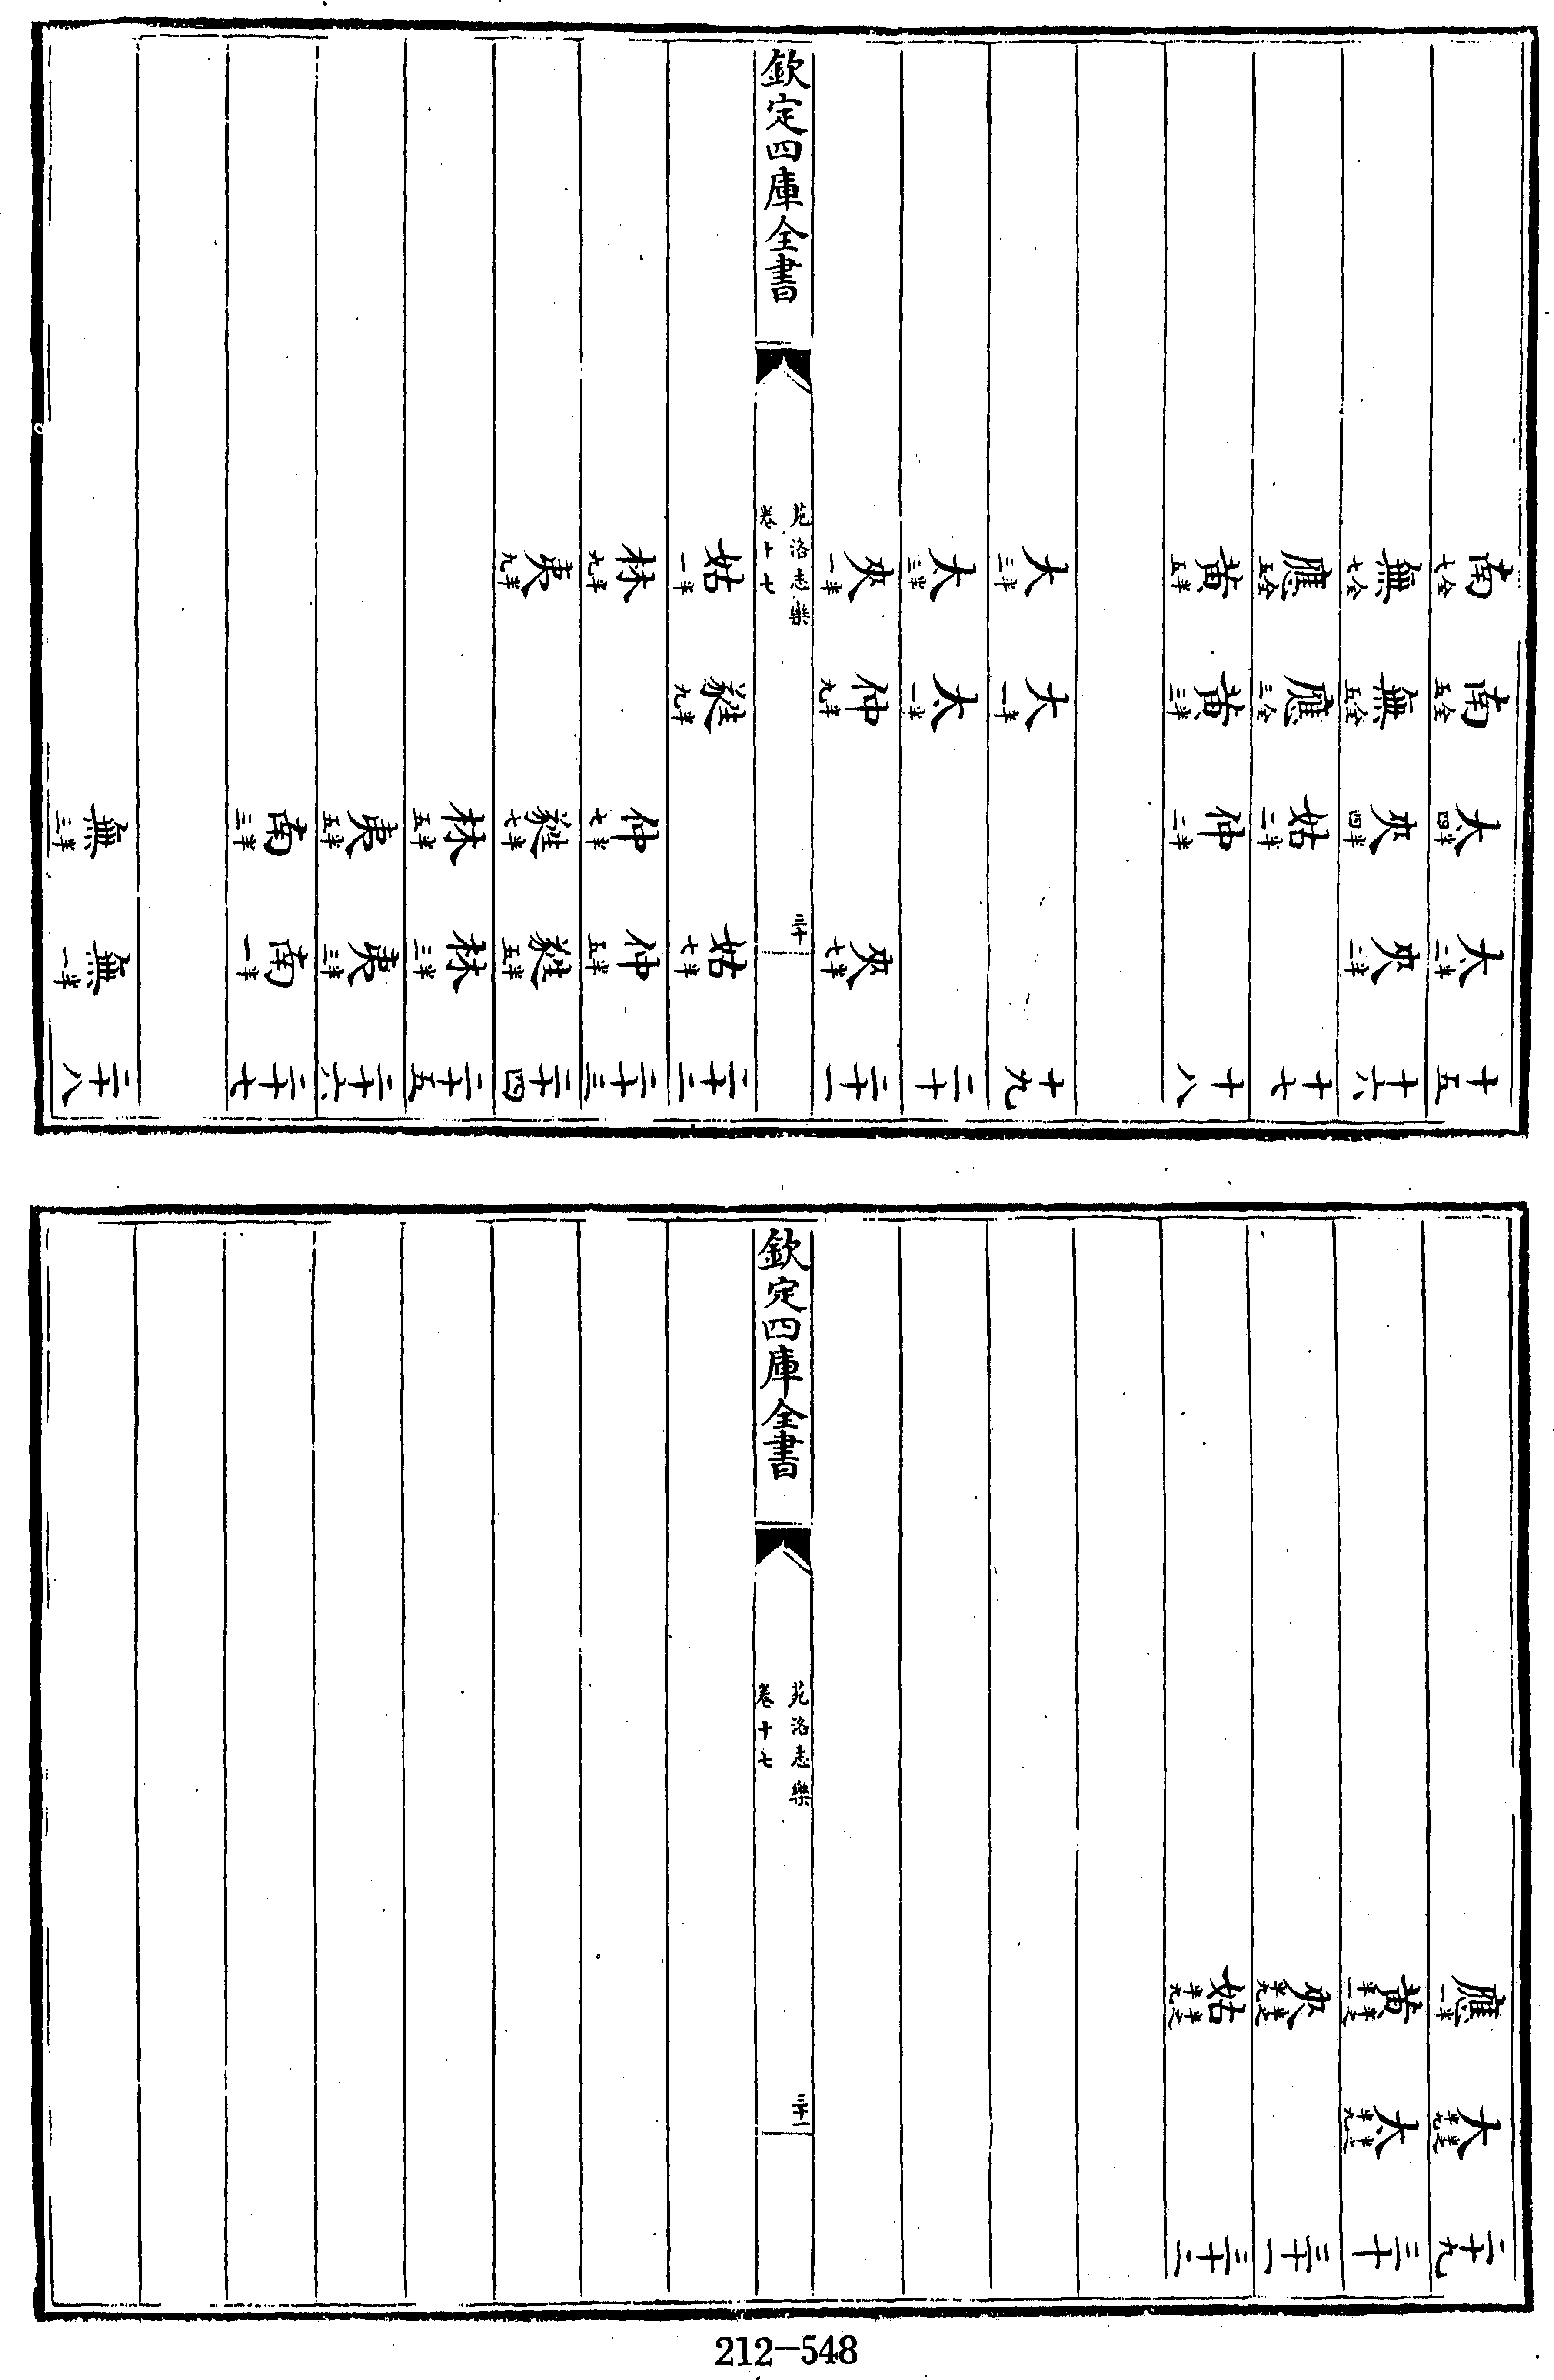 十五 太半二 太半四 南全五 南全七
十六 夾半二 夾半四 無全五 無全七
十七 姑半二 應全三 應全五
十八 仲半二 黃半三 黃半五
十九 大半一 大半三
二十 太半一 太半三
二十一 夾半七 仲半九 夾半一
欽定四庫全書
苑洛志樂
卷十七
三十
二十二 姑半七 蕤半九 姑半一
二十三 仲半五 仲半七 林半九
二十四 蕤半五 蕤半七 夷半九
二十五 林半三 林半五
二十六 夷半三 夷半五
二十七 南半一 南半三
二十八 無半一 無半三
二十九 大半之半九 應半一
三十 太半之半九 黃半之半一
三十一 夾半之半九
三十二 姑半之半九
欽定四庫全書
苑洛志樂
卷十七
三十一
212-548